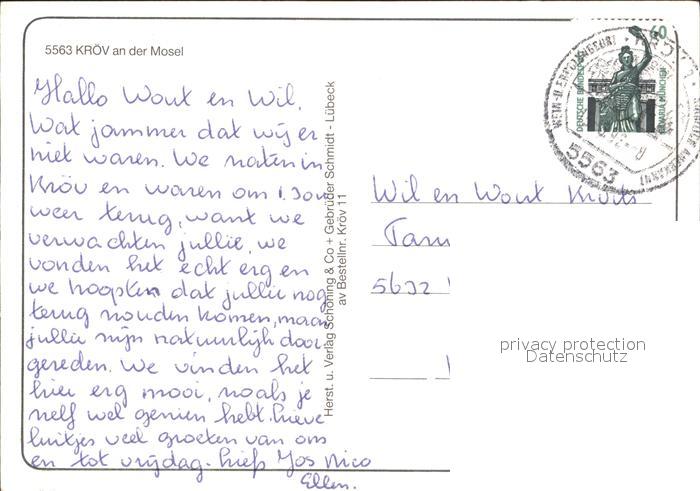 5563 KRÖV an der Mosel
Hallo Wout en Wil,
Wat jammer dat wij er
niet waren. We zaten in
Kröv en waren om 1.30
weer terug, want we
verwachten jullie, we
vonden het echt erg en
we hoopten dat jullie nog
terug zouden komen, maar
jullie zijn natuurlijk door
gereden. We vinden het
hier erg mooi, zoals je
zelf wel gezien hebt. Lieve
luitjes veel groeten van ons
en tot vrijdag. liefs Jos Nico
Ellen.
Herst. u. Verlag Schöning & Co + Gebrüder Schmidt - Lübeck
av Bestellnr. Kröv 11
60
DEUTSCHE BUNDESPOST
BAVARIA MÜNCHEN
5563
Wil en Wout
5632
privacy protection
Datenschutz